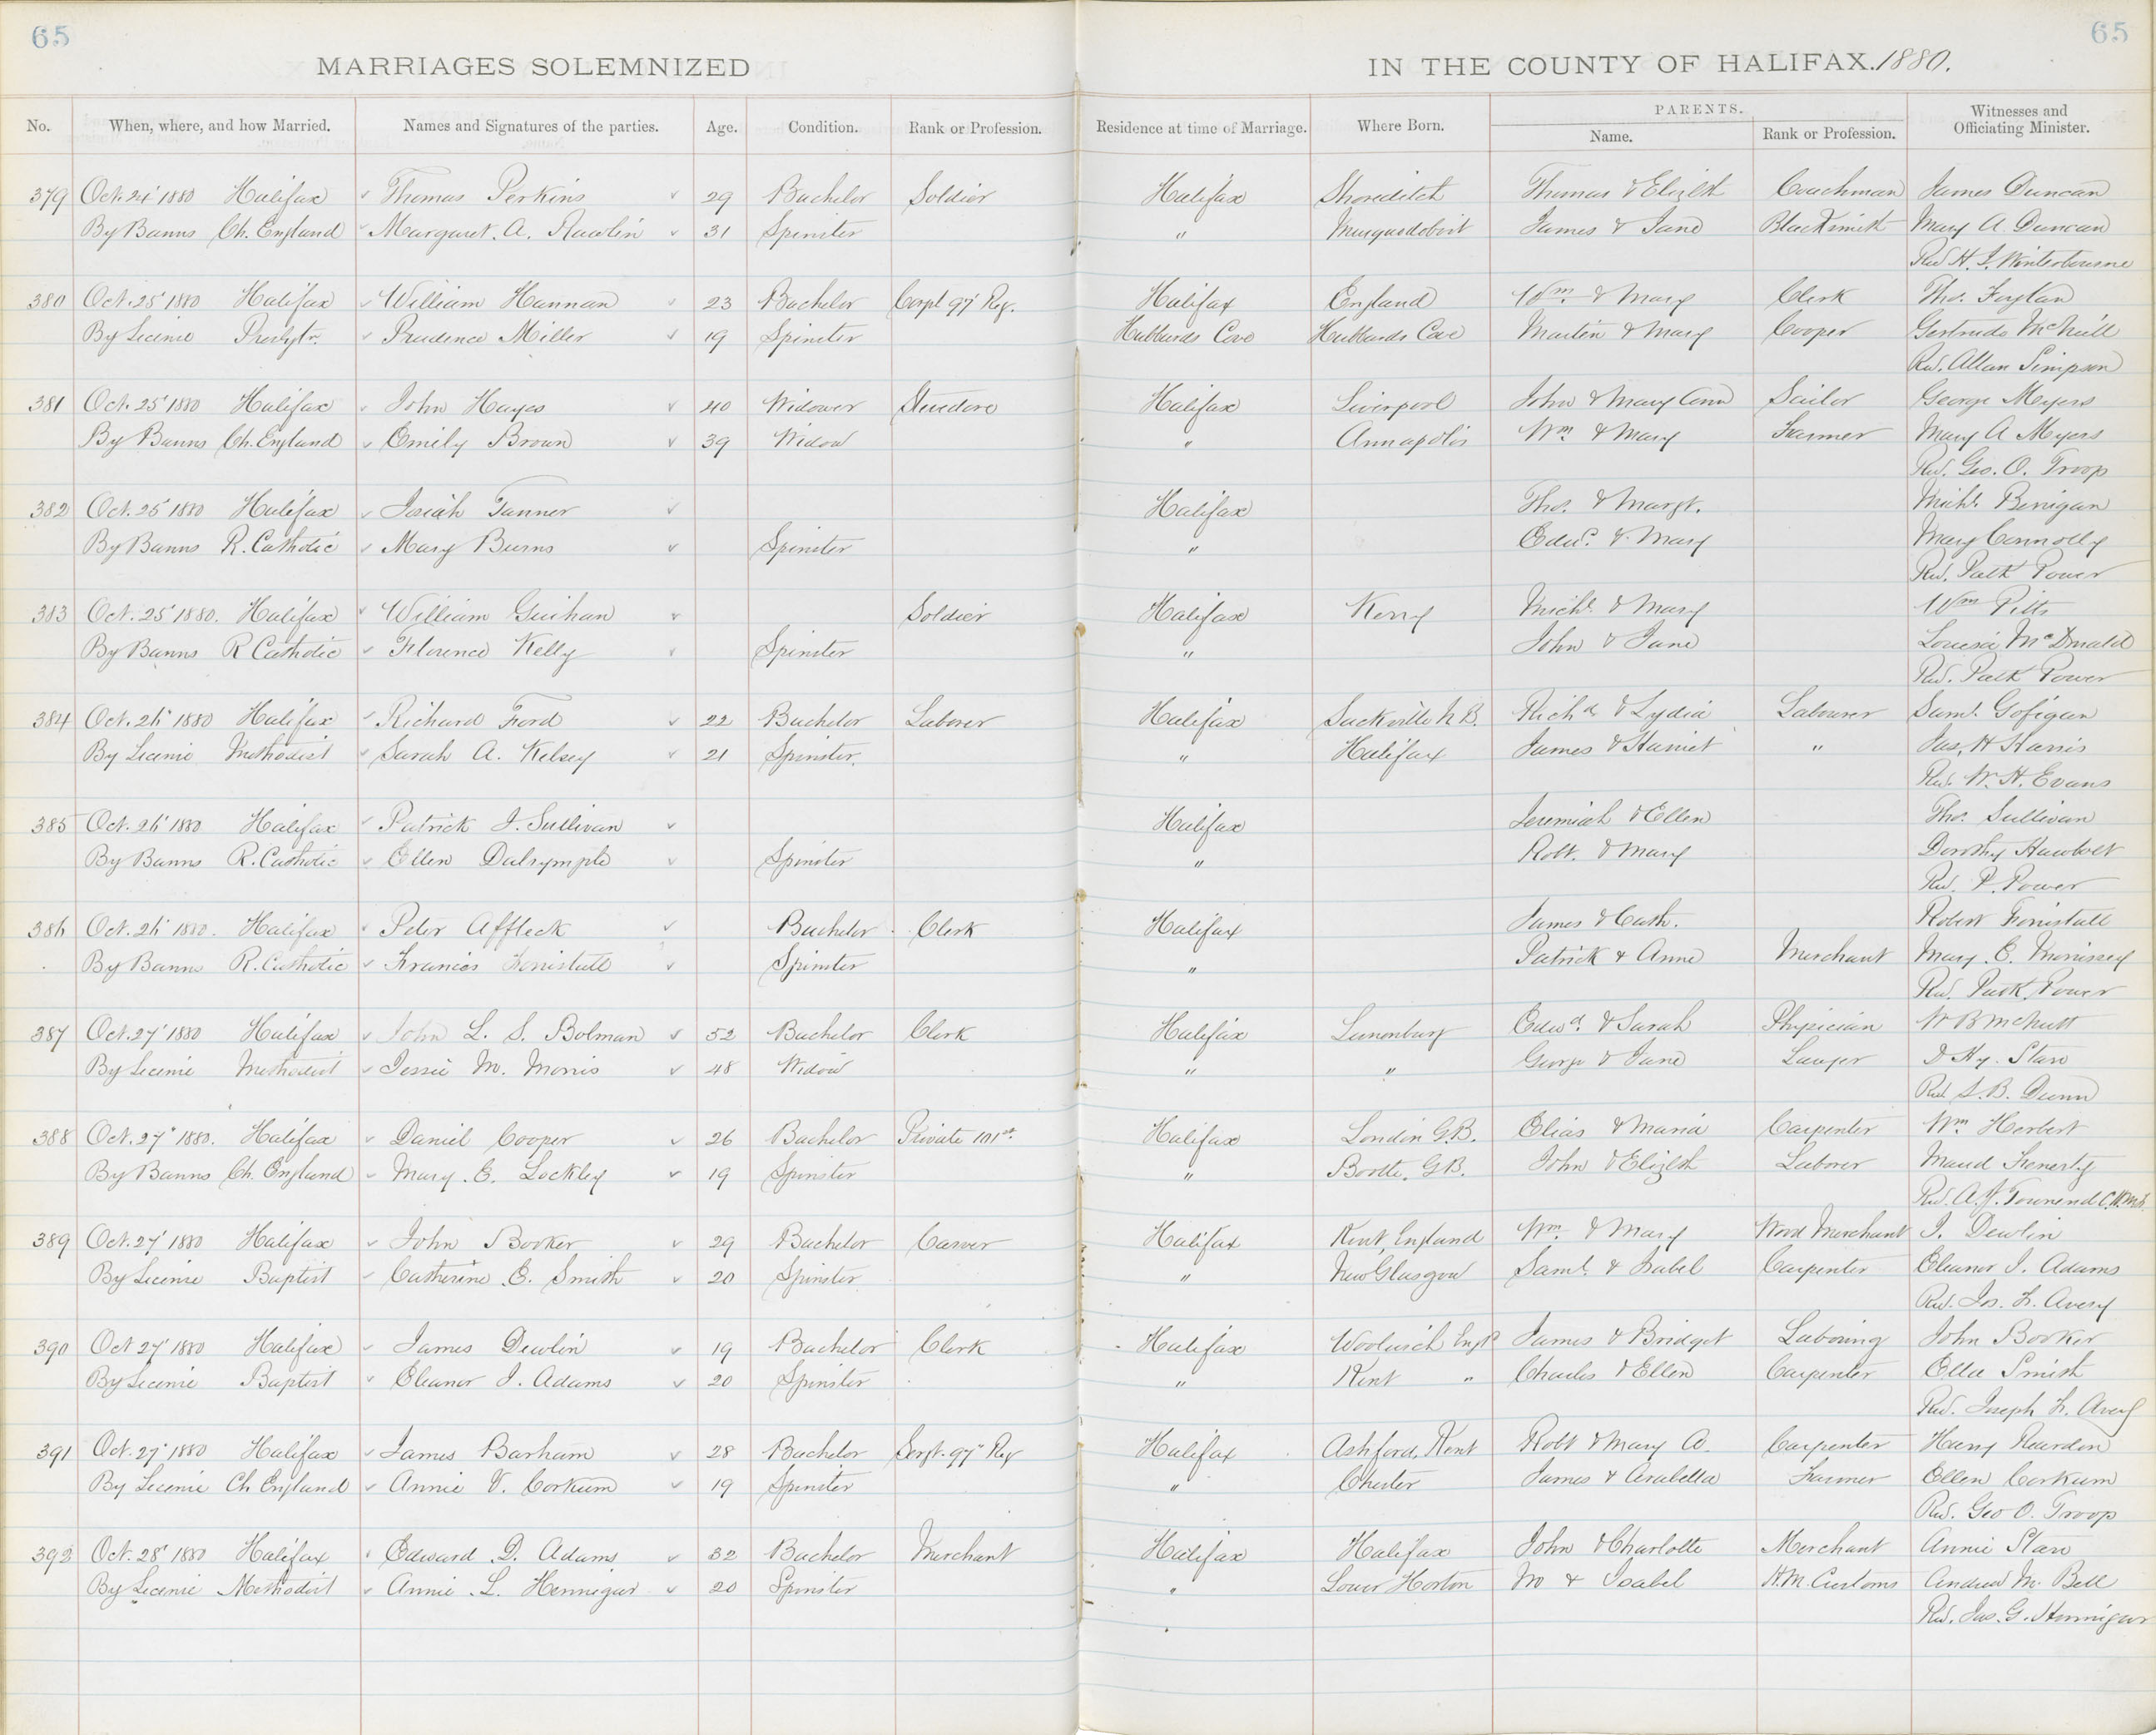 65
65
MARRIAGES SOLEMNIZED IN THE COUNTY OF HALIFAX. 1880.
No. When, where, and how Married. Names and Signatures of the parties. Age. Condition. Rank or Profession. Residence at time of Marriage. Where Born. PARENTS. Name. Rank or Profession. Witnesses and Officiating Minister.
379 Oct. 24' 1880 Halifax Thomas Perkins 29 Bachelor Soldier Halifax Shoreditch Thomas & Elizth Coachman James Duncan
By Banns Ch. England Margaret. A. Rawlin 31 Spinster " Musquodoboit James & Jane Blacksmith Mary A. Duncan
Rev H. J. Winterbourne
380 Oct. 25' 1880 Halifax William Hannan 23 Bachelor Corpl 97' Reg. Halifax England Wm. & Mary Clerk Tho.
By License Presbytn. Prudence Miller 19 Spinster Hubbards Cove Hubbards Cove Martin & Mary Cooper Gertrude McNeill
Rev. Allan Simpson
381 Oct. 25' 1880 Halifax John Hayes 40 Widower Stevedore Halifax Liverpool John & Mary Ann Sailor George Meyers
By Banns Ch. England Emily Brown 39 Widow " Annapolis Wm. & Mary Farmer Mary A Meyers
Rev. Geo. O. Troop
382 Oct. 25' 1880 Halifax Isiah Tanner Halifax Tho. & Margt. Michl. Binigan
By Banns R. Catholic Mary Burns Spinster " Edwd. & Mary Mary Connolly
Rev. Patk Power
383 Oct. 25' 1880. Halifax William Guihan Soldier Halifax Kerry Michl. & Mary Wm Pitts
By Banns R Catholic Florence Kelly Spinster " John & Jane Louisa McDonald
Rev. Patk Power
384 Oct. 26' 1880 Halifax Richard Ford 22 Bachelor Laborer Halifax Sackville N.B. Richd & Lydia Labourer Saml. Gofigan
By License Methodist Sarah A. Kelsey 21 Spinster. " Halifax James & Harriet " Jas. H Harris
Rev. W. H. Evans
385 Oct. 26' 1880 Halifax Patrick J. Sullivan Halifax Jeremiah & Ellen Tho. Sullivan
By Banns R. Catholic Ellen Dalrymple Spinster " Robt. & Mary Dorothy Hawbolt
Rev. P. Power
386 Oct. 26' 1880. Halifax Peter Affleck Bachelor Clerk Halifax James & Cath. Robert Forristall
By Banns R. Catholic Frances Forristall Spinster " Patrick & Anne Merchant Mary. E. Morrissey
Rev. Patk. Power
387 Oct. 27' 1880 Halifax John L. S. Bolman 52 Bachelor Clerk Halifax Lunenburg Edwd. & Sarah Physician W B McNutt
By License Methodist Jessie M. Morris 48 Widow " " George & Jane Lawyer D Hy. Starr
Rev. S. B. Dunn
388 Oct. 27' 1880. Halifax Daniel Cooper 26 Bachelor Private 101st. Halifax London G.B. Elias & Maria Carpenter Wm Herbert
By Banns Ch. England Mary. E. Lockley 19 Spinster " Bootle, G.B. John & Elizth Laborer Maud
Rev. A. J. Townend
389 Oct. 27' 1880 Halifax John Booker 29 Bachelor Carver Halifax Kent, England Wm. & Mary Wood Merchant J. Dewlin
By License Baptist Catherine. E. Smith 20 Spinster. " New Glasgow Saml. & Isabel Carpenter Eleanor J. Adams
Rev. Jos. F. Avery
390 Oct 27' 1880 Halifax James Dewlin 19 Bachelor Clerk Halifax Woolwich Engd James & Bridget Laboring John Booker
By License Baptist Eleanor J. Adams 20 Spinster " Kent " Charles & Ellen Carpenter Ella Smith
Rev. Joseph F. Avery
391 Oct. 27' 1880 Halifax James Barham 28 Bachelor Sergt. 97' Reg Halifax Ashford, Kent Robt & Mary A. Carpenter Harry Reardon
By License Ch England Annie V. Corkum 19 Spinster " Chester James & Arabella Farmer Ellen Corkum
Rev. Geo O. Troop
392 Oct. 28' 1880 Halifax Edward. D. Adams 32 Bachelor Merchant Halifax Halifax John & Charlotte Merchant Annie Starr
By License Methodist Annie. L. Hennigar 20 Spinster " Lower Horton Isabel H.M. Customs Andrew M. Bell
Rev. Jas. G. Hennigar